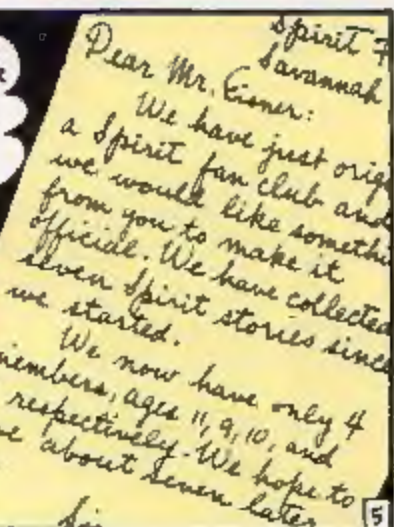 Spirit F
Savannah
Dear Mr. Eisner:
We have just orig
a Spirit fan club and
we would like somethi
from you to make it
official. We have collected
seven Spirit stories since
we started.
We now have only 4
members, ages 11, 9, 10, and
respectively. We hope to
ve about seven later
Sin
5